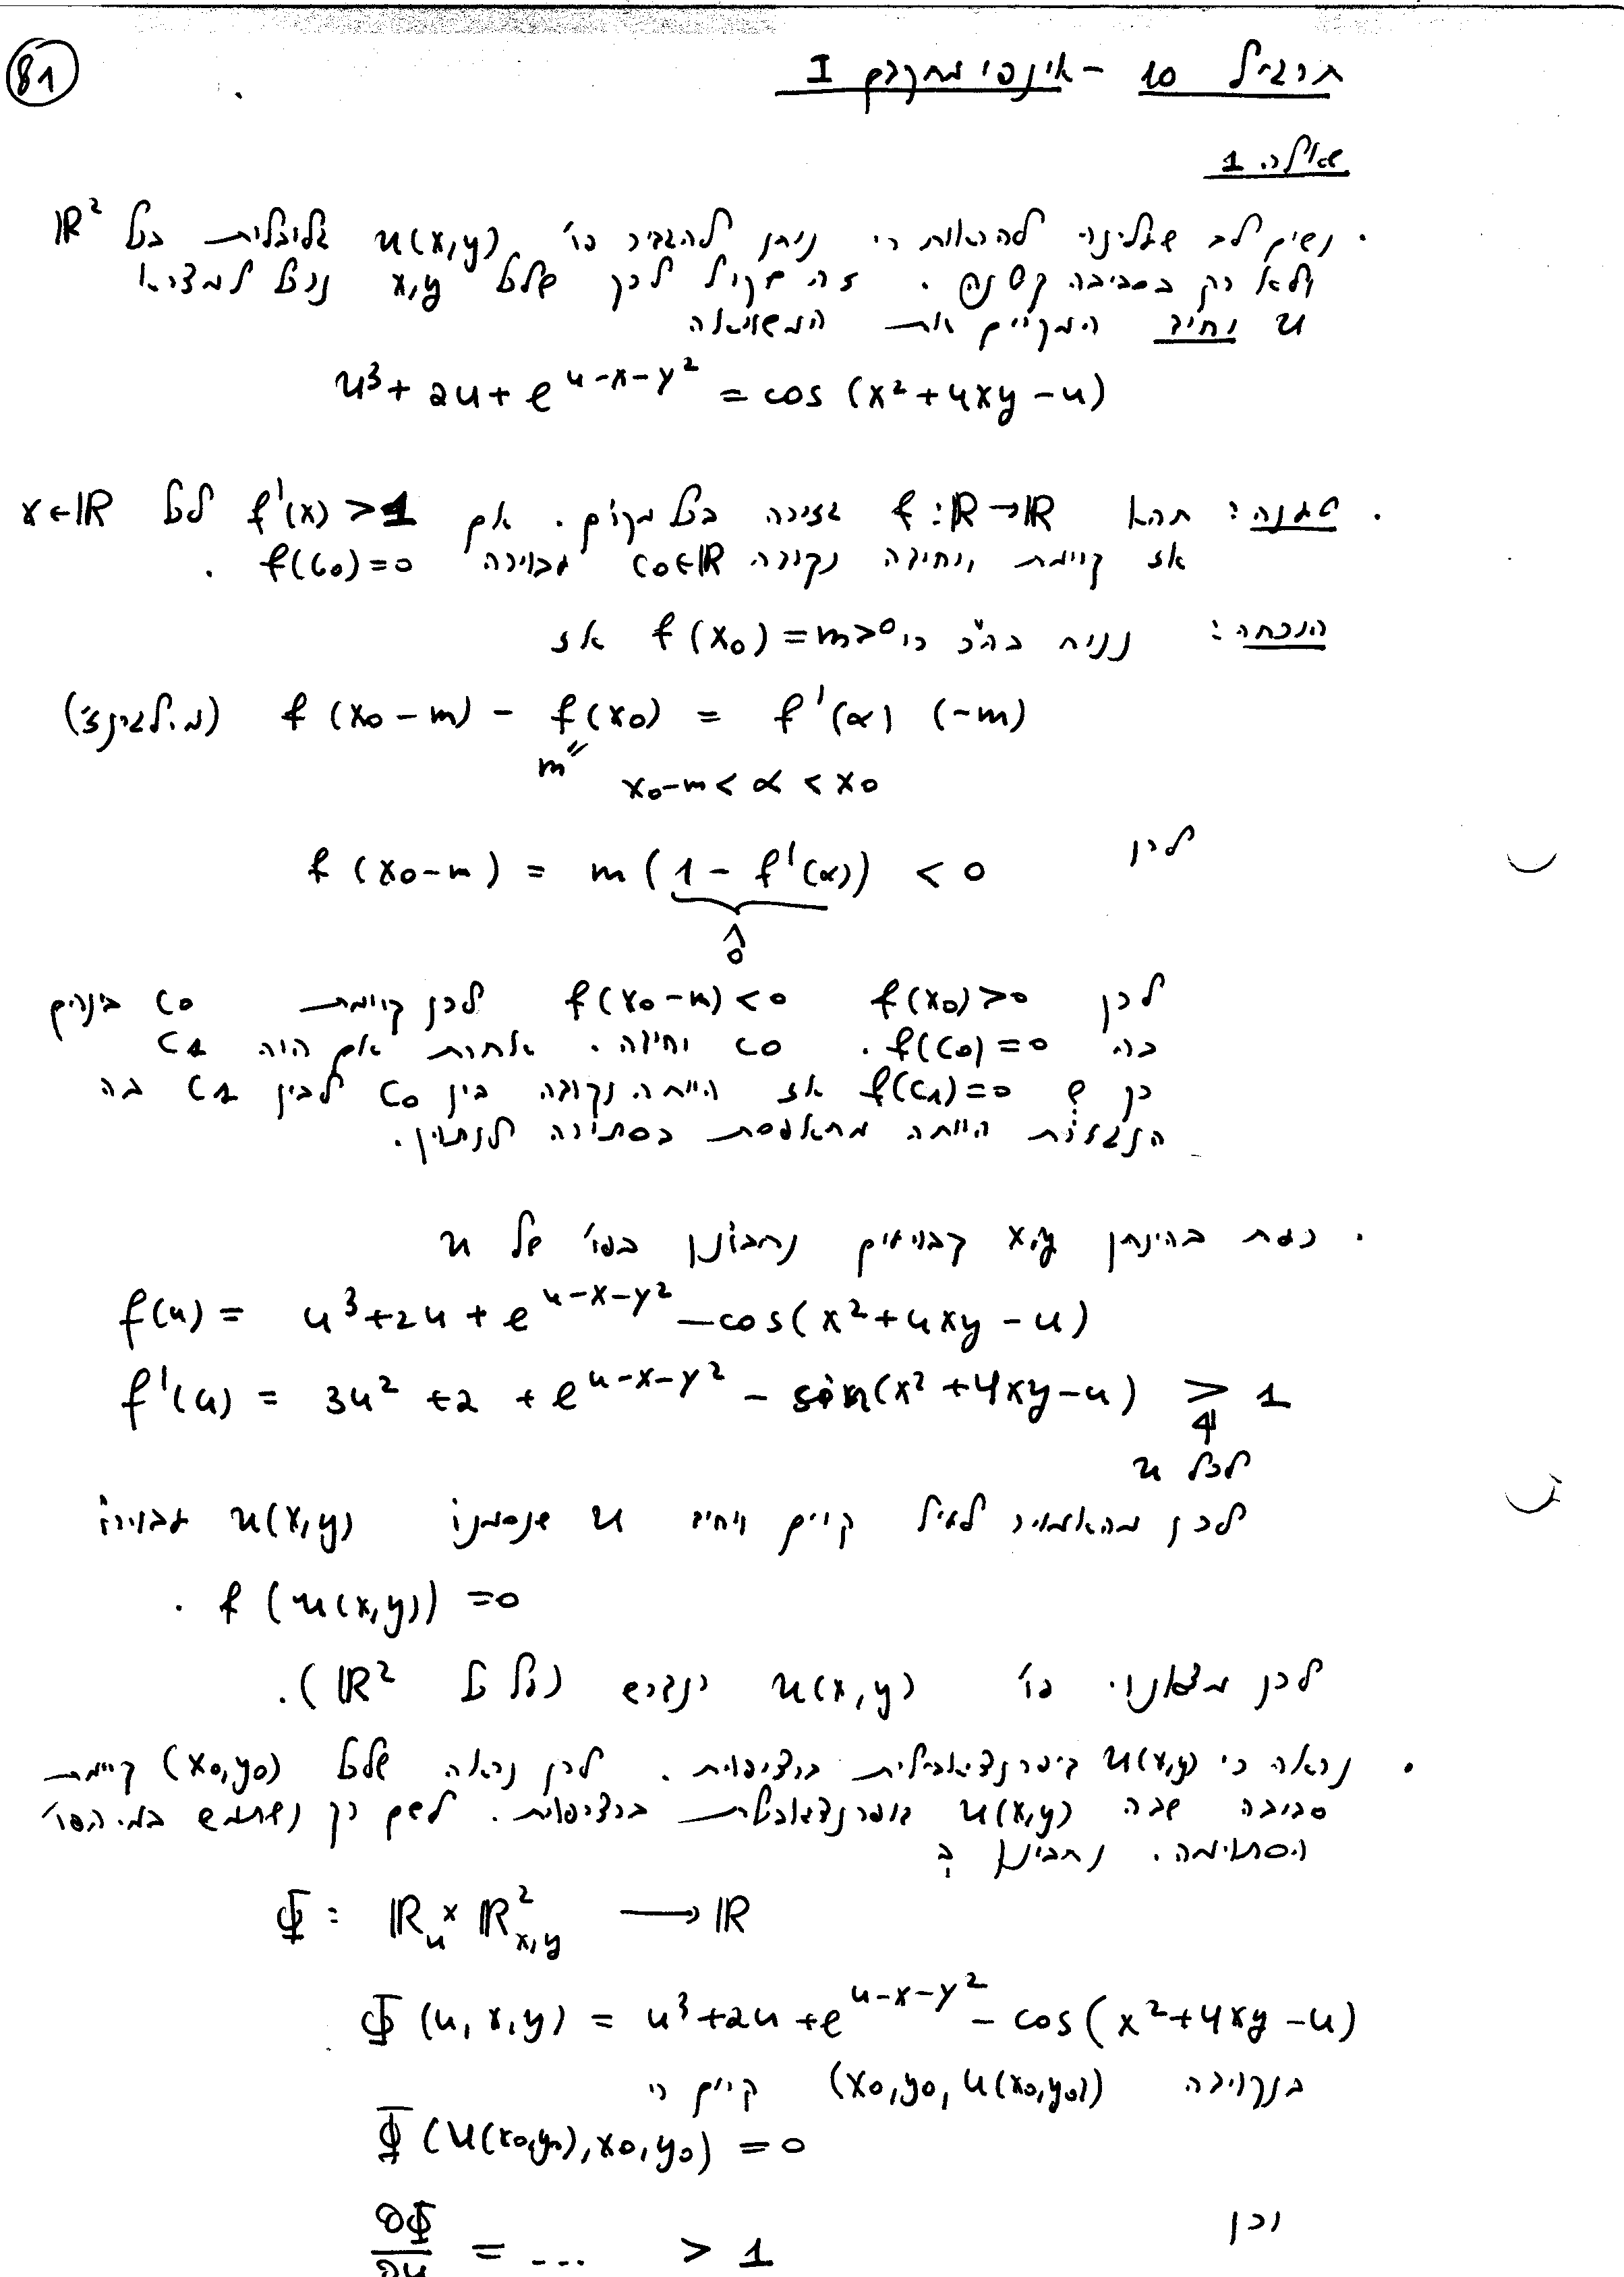 81
תרגיל 10 - אינפי מתקדם I
שאלה 1
. נשים לב שעלינו להראות כי ניתן להגדיר פו' u(x,y) גלובלית בכל ℝ²
ולא רק בסביבה קטנה. זה שקול לכך שלכל x,y נוכל למצוא
u יחיד המקיים את המשוואה
u³+2u+e^{u-x-y²} = cos (x²+4xy-u)
. טענה: תהא f:ℝ→ℝ גזירה בכל מקום. אם f'(x)>1 לכל x∈ℝ
אז קיימת ויחידה נקודה c₀∈ℝ עבורה f(c₀)=0 .
הוכחה: נניח בה"כ כי f(x₀)=m>0 אז
f(x₀-m) - f(x₀) = f'(α) (-m) (מ.לגרנז')
m
x₀-m < α < x₀
לכן
f(x₀-m) = m(1-f'(α)) < 0
0
לכן f(x₀)>0 f(x₀-m)<0 לכן קיימת c₀ ביניהם
בה f(c₀)=0. c₀ יחידה. אחרת אם היה c₁
כך ש f(c₁)=0 אז הייתה נקודה בין c₀ לבין c₁ בה
הנגזרת הייתה מתאפסת בסתירה לנתון.
. כעת בהינתן x,y קבועים נתבונן בפו' של u
f(u) = u³+2u+e^{u-x-y²} - cos(x²+4xy-u)
f'(u) = 3u²+2+e^{u-x-y²} - sin(x²+4xy-u) > 1
לכל u
לכן מהאמור לעיל קיים ויחיד u שנסמנו u(x,y) עבורו
. f(u(x,y))=0
לכן מצאנו פו' u(x,y) כנדרש (על כל ℝ²).
. נראה כי u(x,y) דיפרנציאבילית ברציפות. לכן נראה שלכל (x₀,y₀) קיימת
סביבה שבה u(x,y) דיפרנציאבילית ברציפות. לשם כך נשתמש במ. הפו'
הסתומה. נתבונן ב
Φ: ℝ_u × ℝ²_{x,y} → ℝ
Φ(u,x,y) = u³+2u+e^{u-x-y²} - cos(x²+4xy-u)
בנקודה (x₀,y₀,u(x₀,y₀)) קיים כי
Φ(u(x₀,y₀),x₀,y₀)=0
וכן
∂Φ/∂u = ... > 1